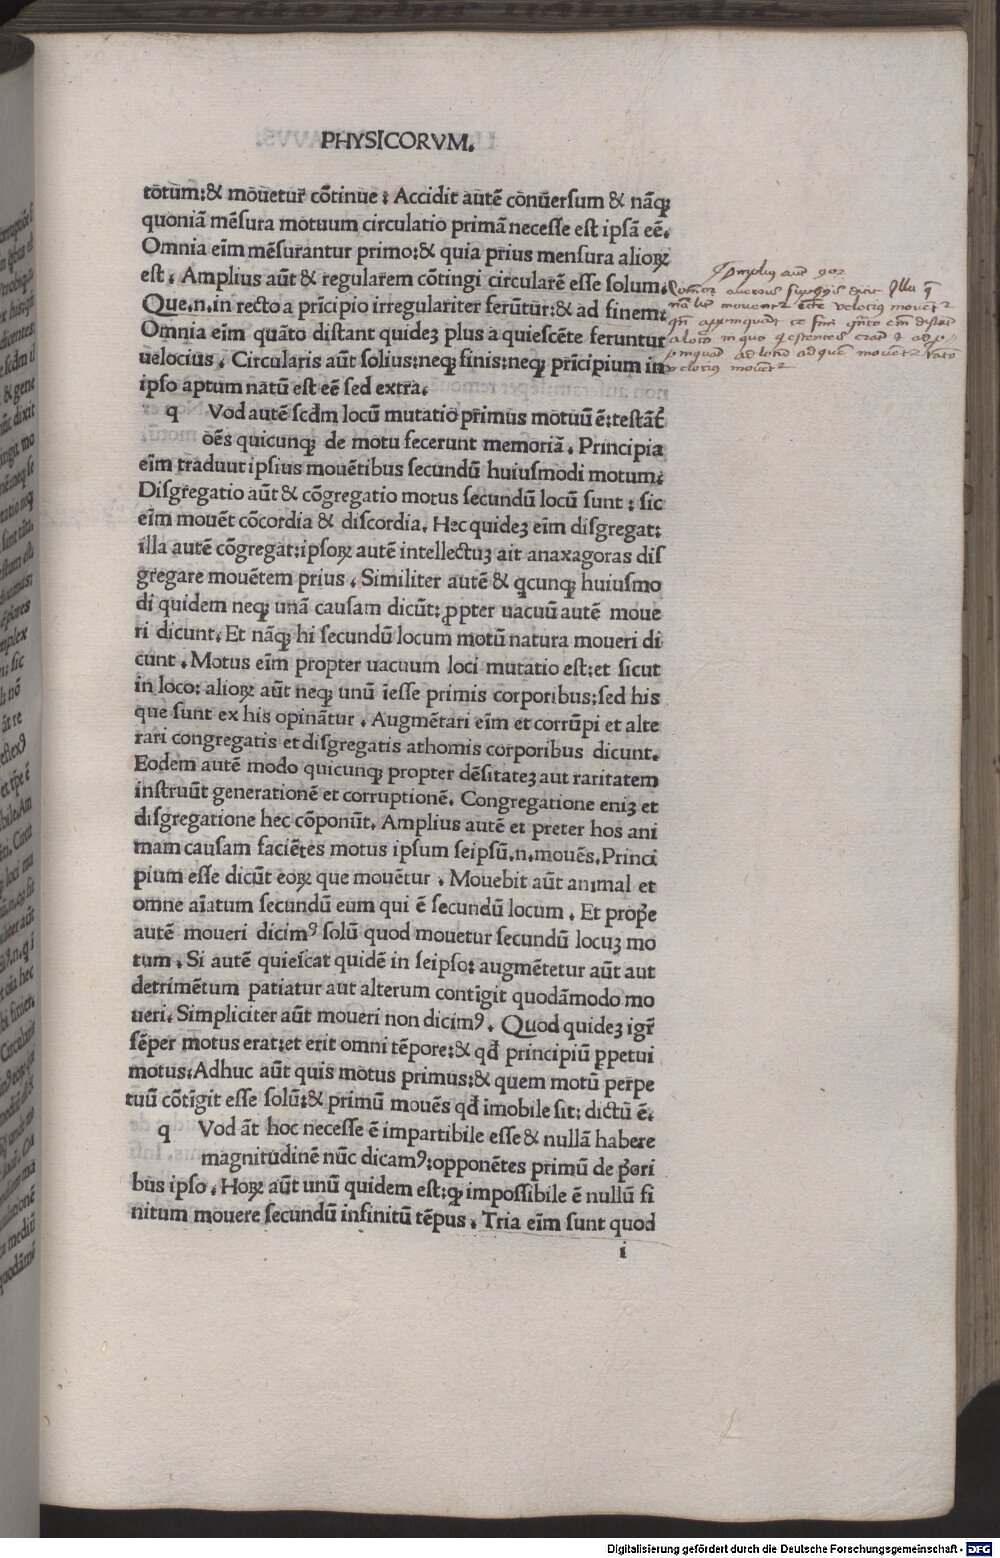 PHYSICORVM.
totum:& mouetur cõtinue : Accidit autẽ conuersum & nãqꝫ
quoniã mẽsura motuum circulatio primã necesse est ipsã eẽ.
Omnia eĩm mẽsurantur primo:& quia prius mensura alioꝝ
est. Amplius aũt & regularem cõtingi circularẽ esse solum.
Que.n.in recto a prĩcipio irregulariter ferũtur:& ad finem:
Omnia eĩm quãto distant quideꝫ plus a quiescẽte feruntur
uelocius. Circularis aũt solius:neqꝫ finis:neqꝫ prĩcipium in
ipso aptum natũ est eẽ sed extra.
q Vod autẽ scđm locũ mutatio primus motuũ ẽ:testãt᷑
oẽs quicunqꝫ de motu fecerunt memoriã. Principia
eĩm traduut ipsius mouẽtibus secundũ huiusmodi motum:
Disgregatio aũt & cõgregatio motus secundũ locũ sunt : sic
eĩm mouẽt cõcordia & discordia. Hec quideꝫ eĩm disgregat:
illa autẽ cõgregat:ipsoꝝ autẽ intellectuꝫ ait anaxagoras dis
gregare mouẽtem prius. Similiter autẽ & qcunqꝫ huiusmo
di quidem neqꝫ unã causam dicũt: ꝓpter uacuũ autẽ moue
ri dicunt. Et nãqꝫ hi secundũ locum motũ natura moueri di
cunt. Motus eĩm propter uacuum loci mutatio est:et sicut
in loco: alioꝝ aũt neqꝫ unũ ĩesse primis corporibus:sed his
que sunt ex his opinãtur. Augmẽtari eĩm et corrũpi et alte
rari congregatis et disgregatis athomis corporibus dicunt.
Eodem autẽ modo quicunqꝫ propter dẽsitateꝫ aut raritatem
instruũt generationẽ et corruptionẽ. Congregatione eniꝫ et
disgregatione hec cõponũt. Amplius autẽ et preter hos ani
mam causam faciẽtes motus ipsum seipsũ.n.mouẽs.Princi
pium esse dicũt eoꝝ que mouẽtur. Mouebit aũt animal et
omne aĩatum secundũ eum qui ẽ secundũ locum. Et prop̃e
autẽ moueri dicimꝰ solũ quod mouetur secundũ locuꝫ mo
tum. Si autẽ quiescat quidẽ in seipso: augmẽtetur aũt aut
detrimẽtum patiatur aut alterum contĩgit quodãmodo mo
ueri. Simpliciter aũt moueri non dicimꝰ. Quod quideꝫ igr̃
sẽper motus erat:et erit omni tẽpore:& qđ principiũ ꝑpetui
motus:Adhuc aũt quis motus primus:& quem motũ perpe
tuũ cõtĩgit esse solũ:& primũ mouẽs qđ imobile sit: dictũ ẽ.
q Vod ãt hoc necesse ẽ impartibile esse & nullã habere
magnitudinẽ nũc dicamꝰ:opponẽtes primũ de p̃ori
bus ipso. Hoꝝ aũt unũ quidem est:qꝫ impossibile ẽ nullũ fi
nitum mouere secundũ infinitũ tẽpus. Tria eĩm sunt quod
i
Digitalisierung gefördert durch die Deutsche Forschungsgemeinschaft - DFG